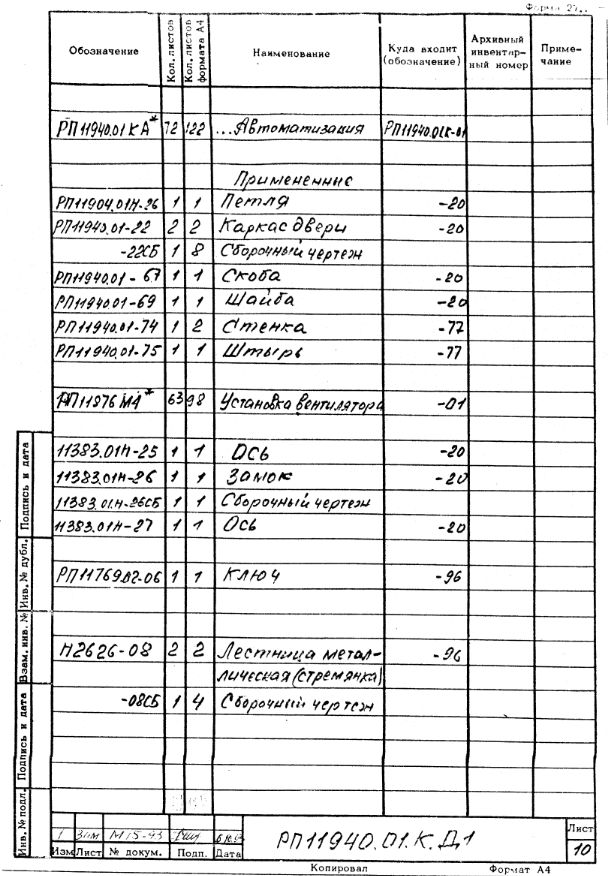 Форма 2
Обозначение Кол. листов Кол. листов формата А4 Наименование Куда входит (обозначение) Архивный инвентарный номер Приме-чание
РП11940.01КА* 72 122 ...Автоматизация РП11940.01К-01
Примененние
РП11904.01Н-26 1 1 Петля -20
РП11940.01-22 2 2 Каркас двери -20
-22СБ 1 8 Сборочный чертеж
РП11940.01-67 1 1 Скоба -20
РП11940.01-69 1 1 Шайба -20
РП11940.01-74 1 2 Стенка -77
РП11940.01-75 1 1 Штырь -77
РП11976М4* 63 98 Установка вентилятора -01
11383.01Н-25 1 1 Ось -20
11383.01Н-26 1 1 Замок -20
11383.01.Н-26СБ 1 1 Сборочный чертеж
11383.01Н-27 1 1 Ось -20
РП11769.02-06 1 1 Ключ -96
Н2626-08 2 2 Лестница метал- -96
лическая (стремянка)
-08СБ 1 4 Сборочный чертеж
Инв. № подл. Подпись и дата Взам. инв. № Инв. № дубл. Подпись и дата
1 Зам М15-93
Изм Лист № докум. Подп. Дата
РП11940.01.К.Д1
Лист
10
Копировал Формат А4